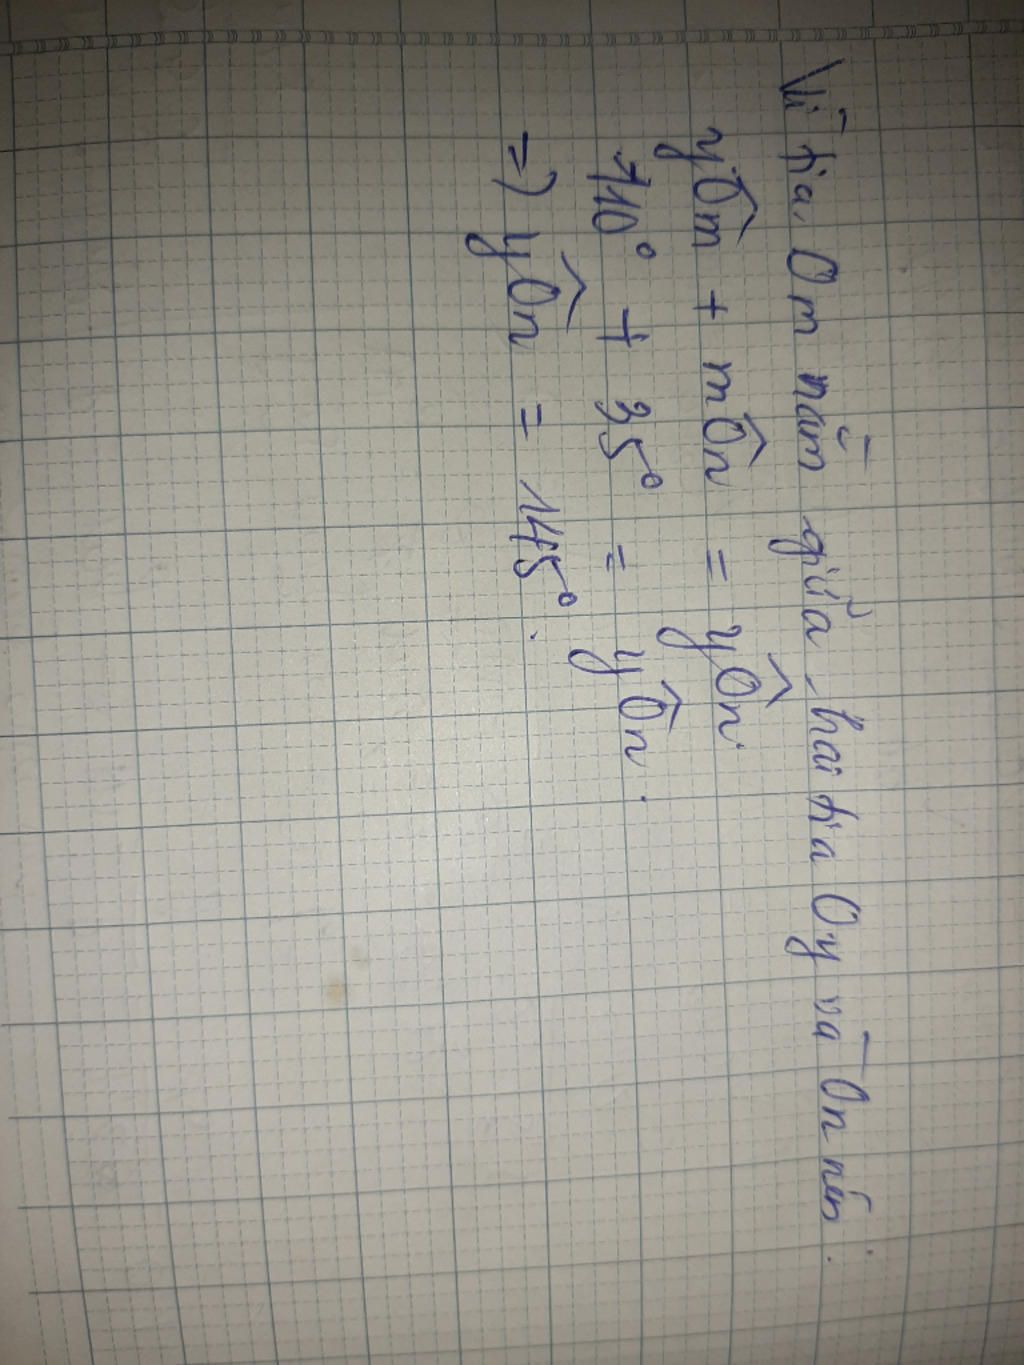 Vì tia Om nằm giữa hai tia Oy và On nên:
yÔm + mÔn = yÔn.
110° + 35° = yÔn.
=> yÔn = 145°.